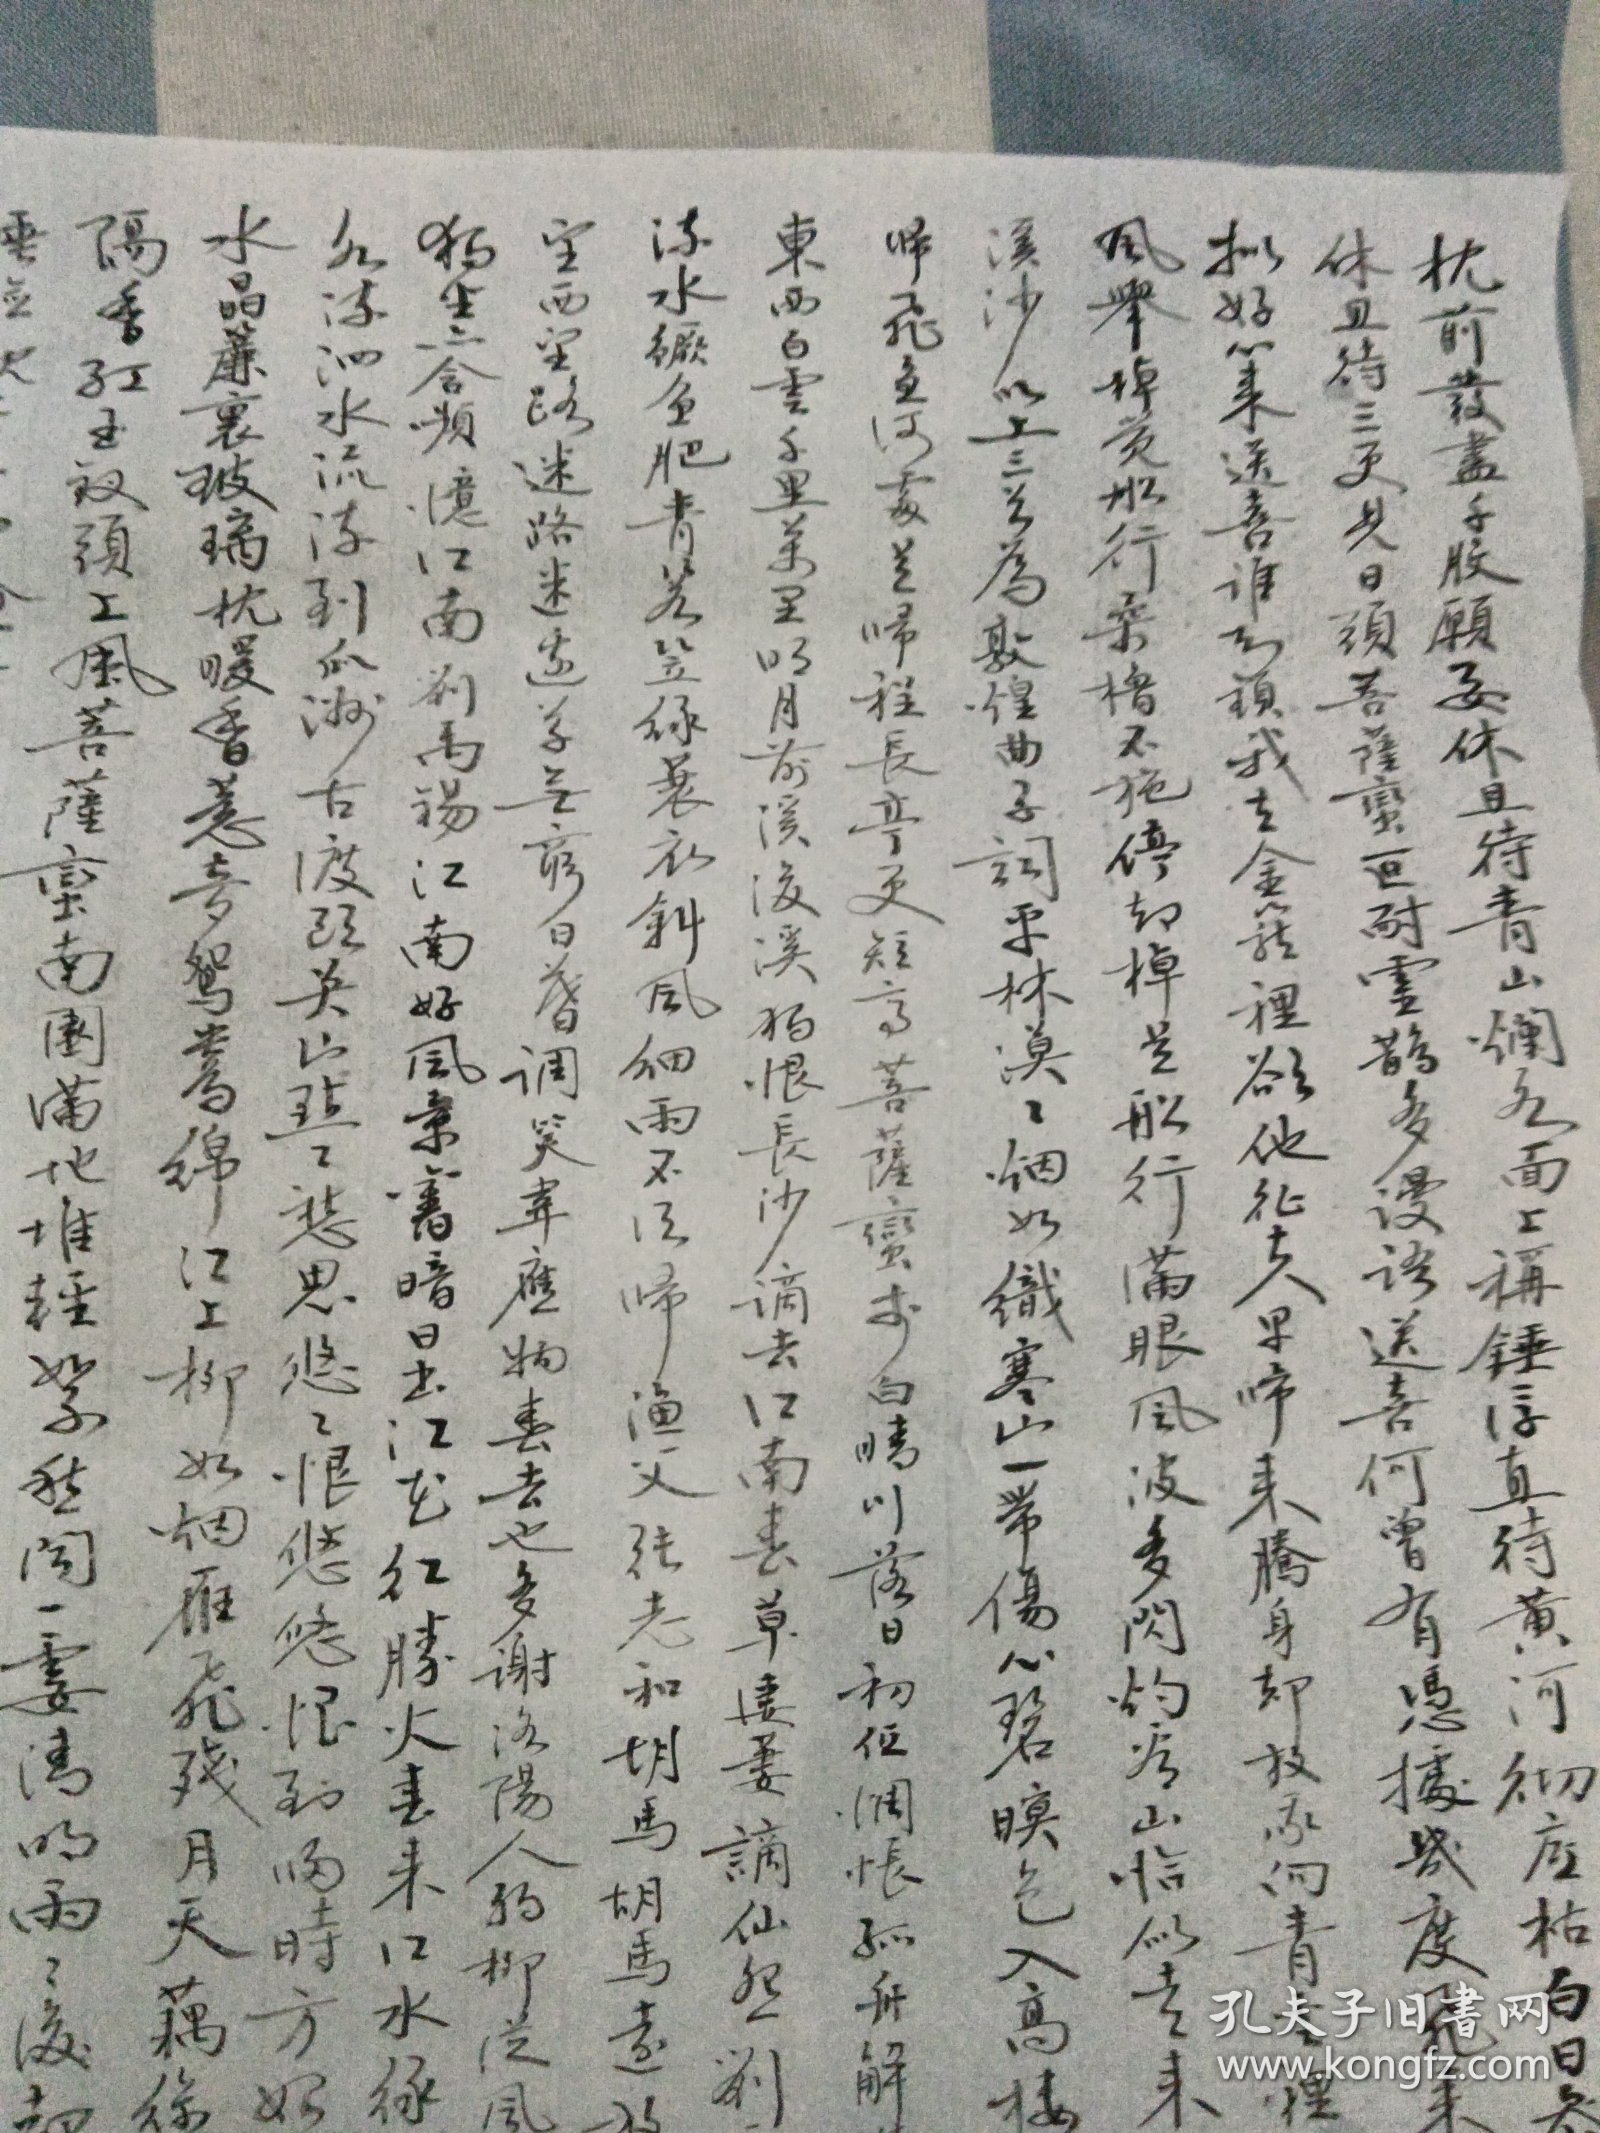 枕前發盡千般願要休且待青山爛水面上稱錘浮直待黃河徹底枯白日參
休且待三更見日頭菩薩蠻叵耐靈鵲多謾語送喜何曾有憑據幾度飛來
擬好心來送喜誰知鎖我在金籠裡欲他征夫早歸來騰身却放我向青雲裡
風舉棹覺船行柔櫓不施停却棹是船行滿眼風波多閃灼看山恰似走來
溪沙以上三首為敦煌曲子詞平林漠漠烟如織寒山一帶傷心碧暝色入高樓
歸飛急何處是歸程長亭更短亭菩薩蠻李白晴川落日初低惆悵孤舟解
東西白雲千里萬里明月前溪後溪獨恨長沙謫去江南春草萋萋謫仙怨劉
流水鱖魚肥青箬笠綠蓑衣斜風細雨不須歸漁父張志和胡馬胡馬遠放
望西望路迷路迷邊草無窮日暮調笑韋應物春去也多謝洛陽人弱柳從風
獨坐亦含嚬憶江南劉禹錫江南好風景舊諳日出江花紅勝火春來江水綠
水流泗水流流到瓜洲古渡頭吳山點點愁思悠悠恨悠悠恨到歸時方始
水晶簾裏玻璃枕暖香惹夢鴛鴦錦江上柳如烟雁飛殘月天藕絲
隔香紅玉釵頭上風菩薩蠻南園滿地堆輕絮愁聞一霎清明雨雨後却